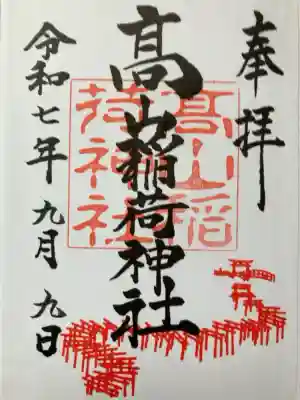 奉拝
髙山稲荷神社
髙山稲
荷神社
令和七年九月九日